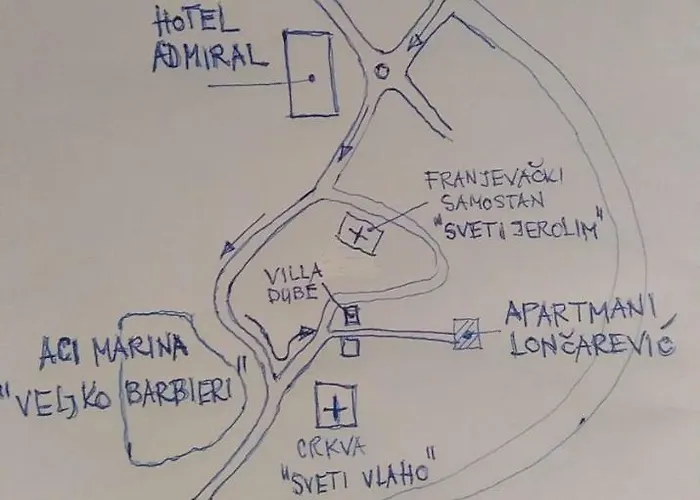 HOTEL
ADMIRAL
FRANJEVAČKI
SAMOSTAN
"SVETI JEROLIM"
VILLA
DUBE
APARTMANI
LONČAREVIĆ
ACI MARINA
"VELJKO BARBIERI"
CRKVA
"SVETI VLAHO"